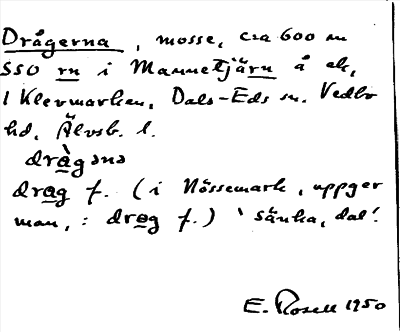 Drågerna, mosse, cra 600 m
SSO rn i Mannetjärn å ek,
1 Klevmarken, Dals-Eds sn. Vedbo
hd, Älvsb. l.
drȧ̀gəna
drag f. (i Nössemark, uppger
man, : drog f.) ‛sänka, dal’.
E. Rosell 1950